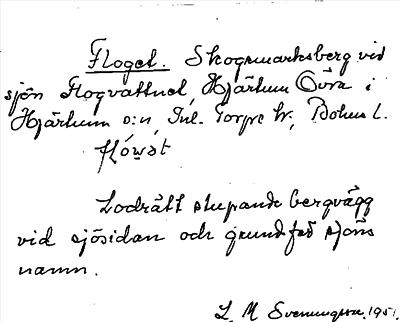 Floget. Skogsmarksberg vid
sjön Flogvattnet, Hjärtum Övra i
Hjärtum s:n, Inl. Torpe hd, Bohus l.
flówət
Lodrätt stupande bergvägg
vid sjösidan och grund för sjöns
namn.
L. M. Svenungsson, 1951.